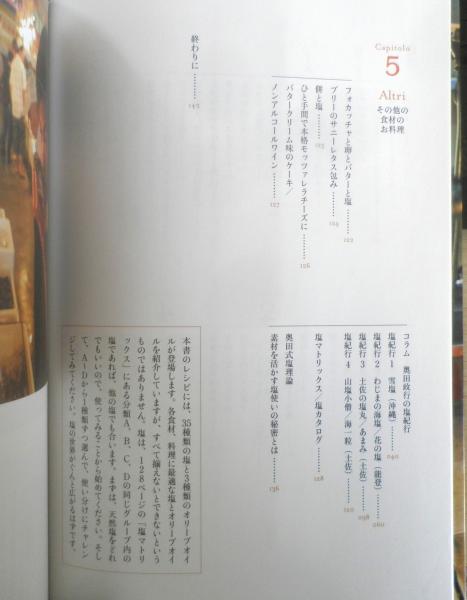 Capitolo
5
Altri
その他の
食材の
お料理
フォカッチャと卵とバターと塩………122
ブリーのサニーレタス包み………124
餅と塩………125
ひと手間で本格モッツァレラチーズに………126
バタークリーム味のケーキ／
ノンアルコールワイン………127
終わりに………142
コラム 奥田政行の塩紀行
塩紀行1 雪塩（沖縄）………040
塩紀行2 わじまの海塩／花の塩（能登）………060
塩紀行3 土佐の塩丸／あまみ（土佐）………098
塩紀行4 山塩小僧／海一粒（土佐）………120
塩マトリックス／塩カタログ………128
奥田式塩理論
素材を活かす塩使いの秘密とは………136
本書のレシピには、35種類の塩と3種類のオリーブオイ
ルが登場します。各食材、料理に最適な塩とオリーブオイ
ルを紹介していますが、すべて揃えないとできないという
ものではありません。塩は、128ページの「塩マトリ
ックス」にある分類A、B、C、Dの同じグループ内の
塩であれば、他の塩でも合います。まずは、天然塩をどれ
でもいいので、使ってみることから始めてください。そし
て、A〜Dから1種類ずつ選んで、使い分けにチャレン
ジしてみてください。塩の世界がぐんと広がるはずです。